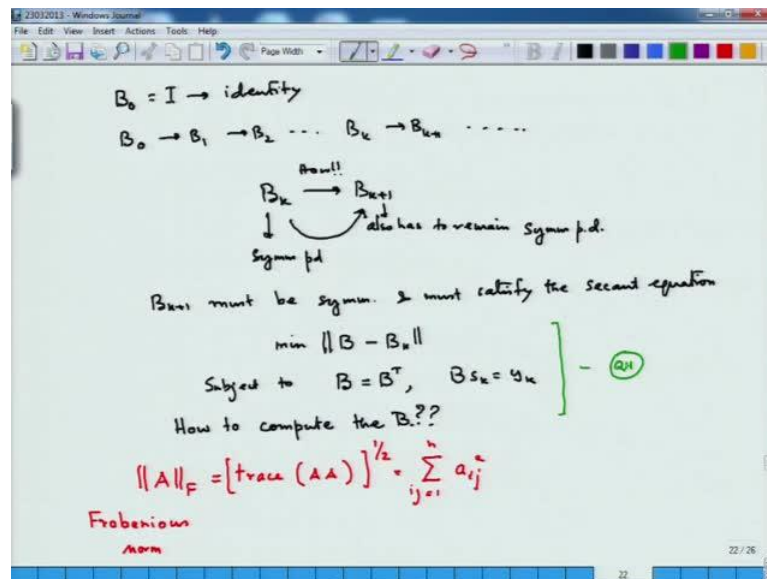 23032013 - Windows Journal
File Edit View Insert Actions Tools Help
Page Width
B₀ = I → identity
B₀ → B₁ → B₂ ... Bₖ → Bₖ₊₁ .....
How!!
Bₖ → Bₖ₊₁
↓ ↓ also has to remain symm p.d.
symm pd
Bₖ₊₁ must be symm. & must satisfy the secant equation
min ||B - Bₖ||
Subject to B = Bᵀ, B sₖ = yₖ ] - QN
How to compute the B??
||A||_F = [trace (AA)]^{1/2} = ∑_{ij=1}^{n} a_{ij}²
Frobenious
norm
22 / 26
22